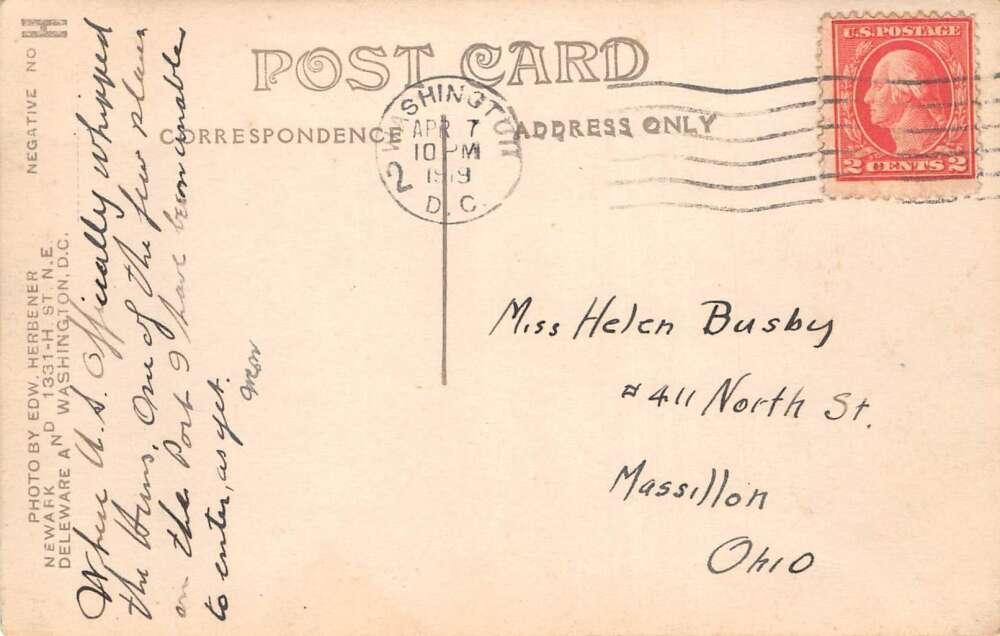 POST CARD
CORRESPONDENCE
ADDRESS ONLY
WASHINGTON
APR 7
10 PM
1919
D.C.
2
U.S. POSTAGE
2 CENTS 2
NEGATIVE NO H
PHOTO BY EDW. HERBENER
NEWARK 1331-H ST. N.E.
DELEWARE AND WASHINGTON, D.C.
Where U.S. Officially whipped
the Huns. One of the few places
on the Post I have been unable
to enter, as yet.
Miss Helen Busby
#411 North St.
Massillon
Ohio